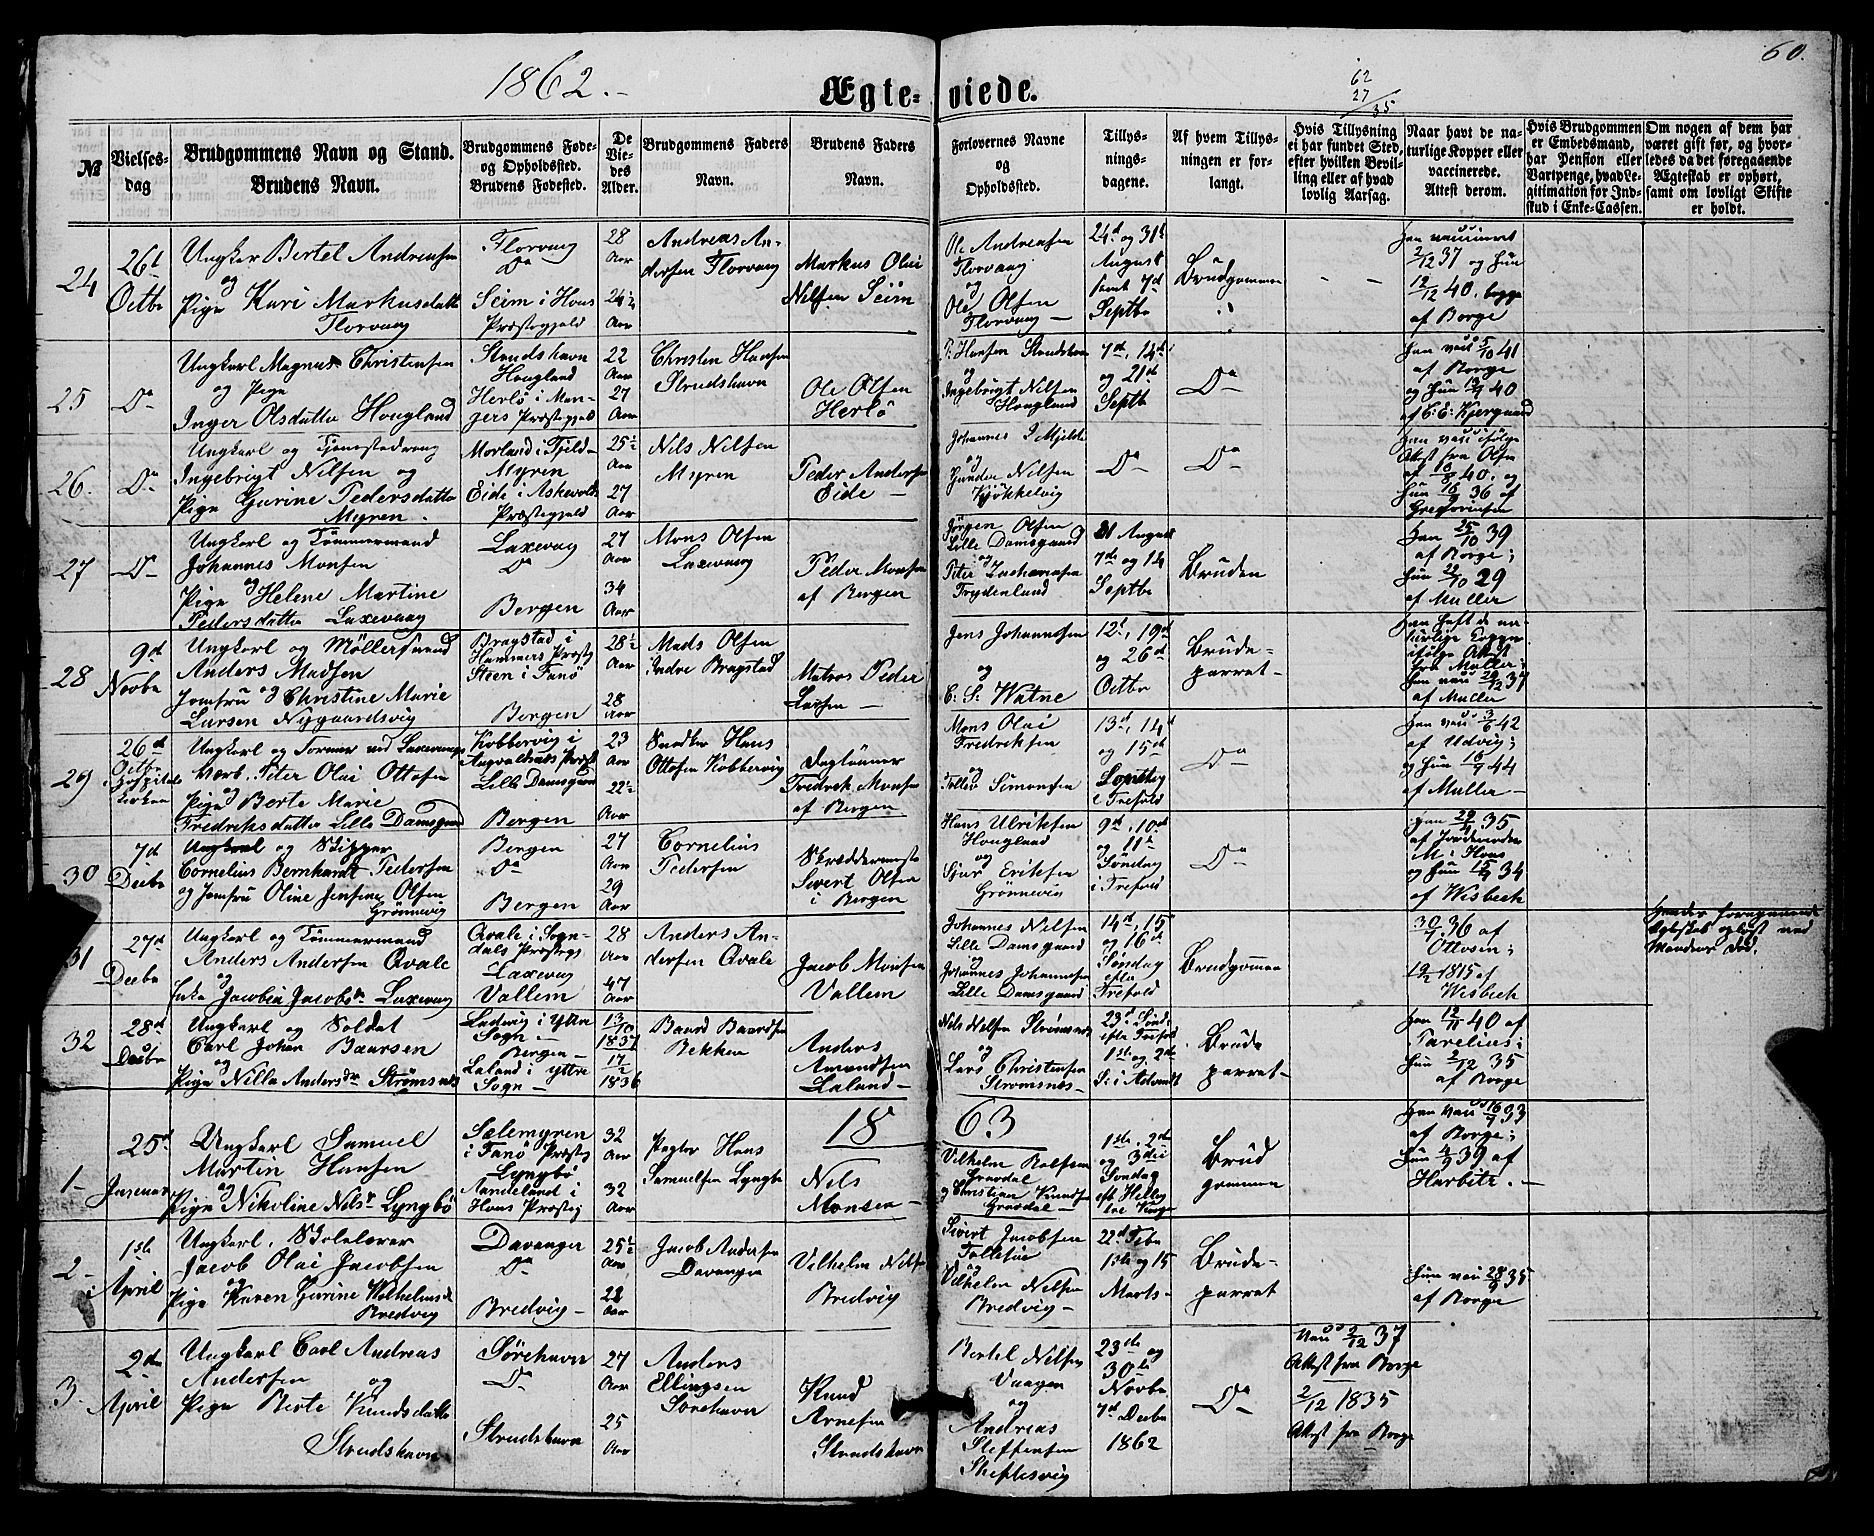 1862.-
Ægte-
viede.
62
27
/35
60.
№
Vielses-
dag
Brudgommens Navn og Stand.
Brudens Navn.
Brudgommens Føde-
og Opholdssted.
Brudens Fødested.
De
Vie-
des
Alder.
Brudgommens Faders
Navn.
Brudens Faders
Navn.
Forlovernes Navne
og
Opholdssted.
Tillys-
nings-
dagene.
Af hvem Tillys-
ningen er for-
langt.
Hvis Tillysning
ei har fundet Sted,
efter hvilken Bevil-
ling eller af hvad
lovlig Aarsag.
Naar havt de na-
turlige Kopper eller
vaccinerede.
Attest derom.
Hvis Brudgommen
er Embedsmand,
har Pension eller
Vartpenge, hvad Le-
gitimation for Ind-
skud i Enke-Cassen.
Om nogen af dem har
været gift før, og hvor-
ledes da det foregaaende
Ægteskab er ophørt,
samt om lovligt Skifte
er holdt.
24
26t
Octbr
Ungkar Bertel Andreasen
og
Pige Kari Markusdatter
Florvaag
Florvaag
Do
Seim i Hous
Præstegjeld
28
Aar
24½
Aar
Andreas An-
dersen Florvaag
Markus Olai
Nilsen Seim
Ole Andreasen
Florvaag
og
Ole Olsen
Florvaag
24d og 31t
August
samt 7d
Septbr
Brudgommen
Han vaccineret
2/12 37 og hun
12/12 40, begge
af Borge
25
Do
Ungkarl Magnus Christensen
og Pige
Inger Olsdatter Hougland
Strudshavn
Hougland
Herlø i Man-
gers Præstegjeld
22
Aar
27
Aar
Christen Hansen
Strudshavn
Ole Olsen
Herlø
P. Hansen Strudshavn
og
Ingebrigt Nilsen
Hougland
7d, 14d
og 21d
Septb
Do
Han vac 5/10 41
af Borge
og hun 40
af C. E. Kjergaard
26.
Do
Ungkarl og Tjenestedreng
Ingebrigt Nilsen og
Pige Gurine Pedersdatter
Myren.
Morland i Fjeld
Myren
Eide i Askevolds
Præstegjeld
25½
Aar
27
Aar
Nils Nilsen
Myren
Peder Andersen
Eide
Johannes I Mjelde
og
Gunder Nilsen
Kjøkkelvig
Do
Do
Han vac ifølge
Attest fra Olsen
af 40, og
hun 36 af
Gregoriusen
27
Do
Ungkarl og Tømmermand
Johannes Monsen
og
Pige Helene Martine
Pedersdatter Laxevaag
Laxevaag
Do
Bergen
27
Aar
34
Aar
Mons Olsen
Laxevaag
Peder Monsen
af Bergen
Jørgen Olsen
Lille Damsgaard
og
Peter Zachariasen
Frydenlund
31 August
7de og 14
Septbr
Bruden
Han 25/10 39
af Borge;
hun 29/10 29
af Müller
28
9d
Novbr
Ungkarl og Møllersvend
Anders Madsen
og
Jomfru Christine Marie
Larsen Nygaardsvig
Bragstad i
Hammers Præstg
Steen i Fanø
Bergen
28½
Aar
28
Aar
Mads Olsen
Indre Bragstad
Matros Peder
Larsen
Jens Johannesen
og
C. S. Watne
12t, 19d
og 26d
Octbr
Brude-
parret
Han haft de na-
turlige Kopper
ifølge Attest
fra Müller;
hun vac 37
af Müller
29
26d
Octbr
Hospitals
kirken
Ungkarl og Former ved Laxevaags
Værk. Peter Olai Ottosen
og
Pige Berte Marie
Fredriksdatter Lille Damsgaard
Kobbervig i
Augvaldsnes Præst
Lille Damsgaard
Bergen
23
Aar
22½
Aar
Snedker Hans
Ottosen Kobbervig
Dagløner
Fredrik Monsen
af Bergen
Mons Olai
Fredriksen
og
Tollev Simonsen
13d, 14d
og 15d
Søndag
e Trefold
Do
Han vac 3/6 42
af Udvig;
og hun 44
af Müller
30
7d
Decbr
Ungkarl og Skipper
Cornelius Bernhardt Pedersen
og Jomfru Oline Jensine Olsen
Grønnevig
Bergen
Do
Bergen
27
Aar
29
Aar
Cornelius
Pedersen
Skræddermester
Sivert Olsen
i Bergen
Hans Ulriksen
Hougland
og
Sjur Eriksen
Grønnevig
9d, 10d
og 11te
Søndag
i Trefold
Do
Han 35
af Jordemoder
M. i Hous
og hun 34
af Wisbech
31
27d
Decbr
Ungkarl og Tømmermand
Anders Andersen Qvale
og
Enke Jacobia Jacobsdr Laxevaag
Qvale i Sogn-
dals Præsteg
Laxevaag
Vallem
28
Aar
47
Aar
Anders An-
dersen Qvale
Jacob Monsen
Vallem
Johannes Nilsen
Lille Damsgaard
og
Johannes Johannesen
Lille Damsgaard
14d, 15
og 16d
Søndag
efter
Trefold
Brudgommen
30/7 36 af
Ottosen;
1815 af
Wisbech
Hendes foregaaende
Ægteskab opløst ved
Mandens Død.
32
28d
Decbr
Ungkarl og Soldat
Carl Johan Baarsen
og
Pige Nilla Andersdr Strømsnes
Ladvig i Yttre
Sogn.
Bergen
Laland i yttre
Sogn
13/10
1837
17/2
1836
Baard Baardsen
Bekken
Anders
Amundsen
Laland
Nils Nilsen Strømsnes
og
Lars Christensen
Strømsnes
23d Sønd.
efter Trefold
1ste og 2de
S. i Advent
Brude
parret
Han 12/11 40 af
Tarelius;
hun 2/12 35
af Borge
18
63
1
25d
Januar
Ungkarl Samuel
Martin Hansen
og
Pige Nikoline Nilsdr Lyngbø
Sælemyren
i Fanø Præstg
Lyngbø
Aadeland i
Hous Præsteg
32
Aar
32
Aar
Pagter Hans
Samuelsen Lyngbø
Nils
Monsen
Vilhelm Rolfsen
Gravdal
og Christian Knudsen
Gravdal
1ste, 2de
og 3die
Søndag
eft. Hellig
tre Konger
Brud
gommen
Han vac 16/9 33
af Borge;
hun 39 af
Harbitz.
2
1ste
April
Ungkarl, Skolelærer
Jacob Olai Jacobsen
og
Pige Karen Gurine Wilhelmsdr
Bredvig
Davanger
Do
Bredvig
25½
Aar
22
Aar
Jacob Andersen
Davanger
Vilhelm Nilsen
Bredvig
Sivert Jacobsen
Follesøe
og
Vilhelm Nilsen
Bredvig
22d Febr
1ste og 15
Marts
Brude-
parret
Hun vac 28/9 35
af Borge
3
2d
April
Ungkarl Carl Andreas
Andersen og
Pige Berte Knudsdatter
Strudshavn
Sørehavn
Do
Strudshavn
27
Aar
25
Aar
Anders
Ellingsen
Sørehavn
Knud
Arnesen
Strudshavn
Bertel Nilsen
Vaagen
og
Andreas
Steffensen
Skiftesvig
23de og
30te
Novbr
7d Decbr
1862
Do
Vac 2/12 37
Attest fra Borge
2/12 1835
Attest fra Borge